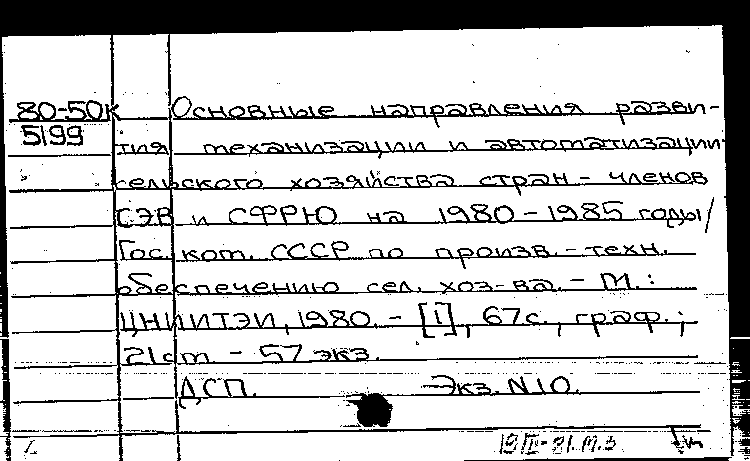 80-50к Основные направления разви-
5199 тия механизации и автоматизации
сельского хозяйства стран - членов
СЭВ и СФРЮ на 1980-1985 годы/
Гос. ком. СССР по произв.-техн.
обеспечению сел. хоз-ва. - М.:
ЦНИИТЭИ, 1980. - [1], 67с., граф.;
21см. - 57 экз.
ДСП. Экз. N10.